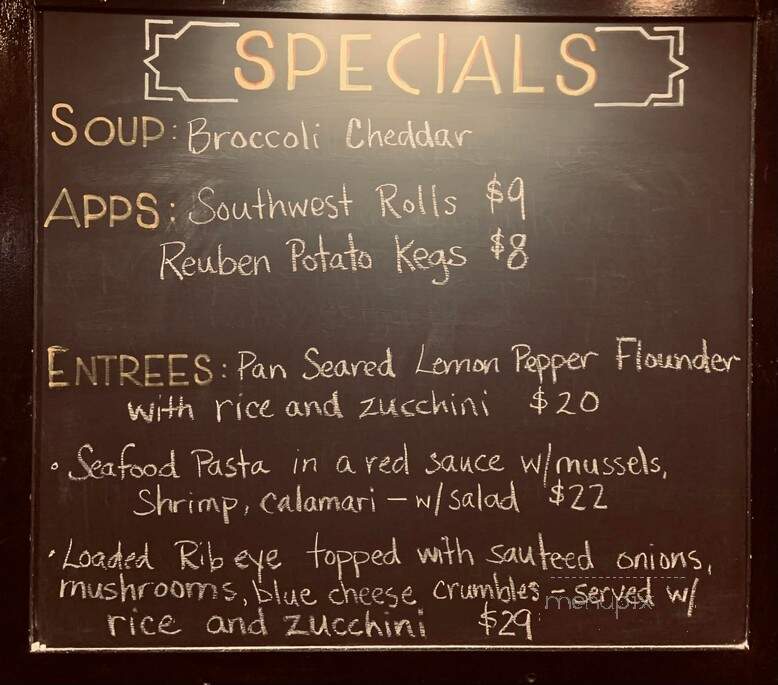 SPECIALS
SOUP: Broccoli Cheddar
APPS: Southwest Rolls $9
Reuben Potato Kegs $8
ENTREES: Pan Seared Lemon Pepper Flounder
with rice and zucchini $20
• Seafood Pasta in a red sauce w/mussels,
Shrimp, calamari - w/salad $22
• Loaded Rib eye topped with sauteed onions,
mushrooms, blue cheese crumbles - served w/
menupix
rice and zucchini $29